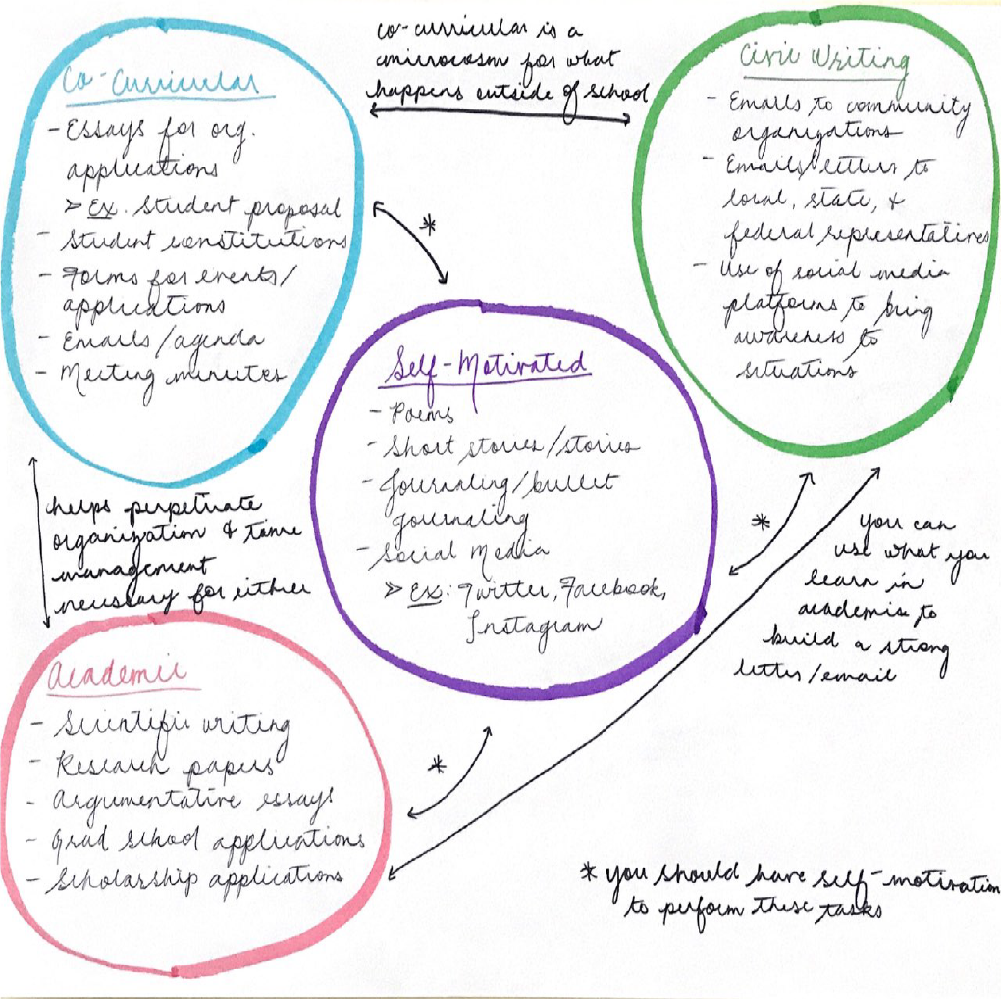 Co-Curricular
- Essays for org.
applications
> Ex. Student proposal
- Student constitutions
- Forms for events/
applications
- Emails/agenda
- Meeting minutes
co-curricular is a
microcosm for what
happens outside of school
Civic Writing
- Emails to community
organizations
- Emails/letters to
local, state, &
federal representatives
- Use of social media
platforms to bring
awareness to
situations
*
Self-Motivated
- Poems
- Short stories/stories
- Journaling/bullet
journaling
- Social Media
> Ex: Twitter, Facebook,
Instagram
helps perpetuate
organization & time
management
necessary for either
*
you can
use what you
learn in
academia to
build a strong
letter/email
Academic
- Scientific writing
- Research papers
- Argumentative essays
- Grad school applications
- Scholarship applications
*
* you should have self-motivation
to perform these tasks